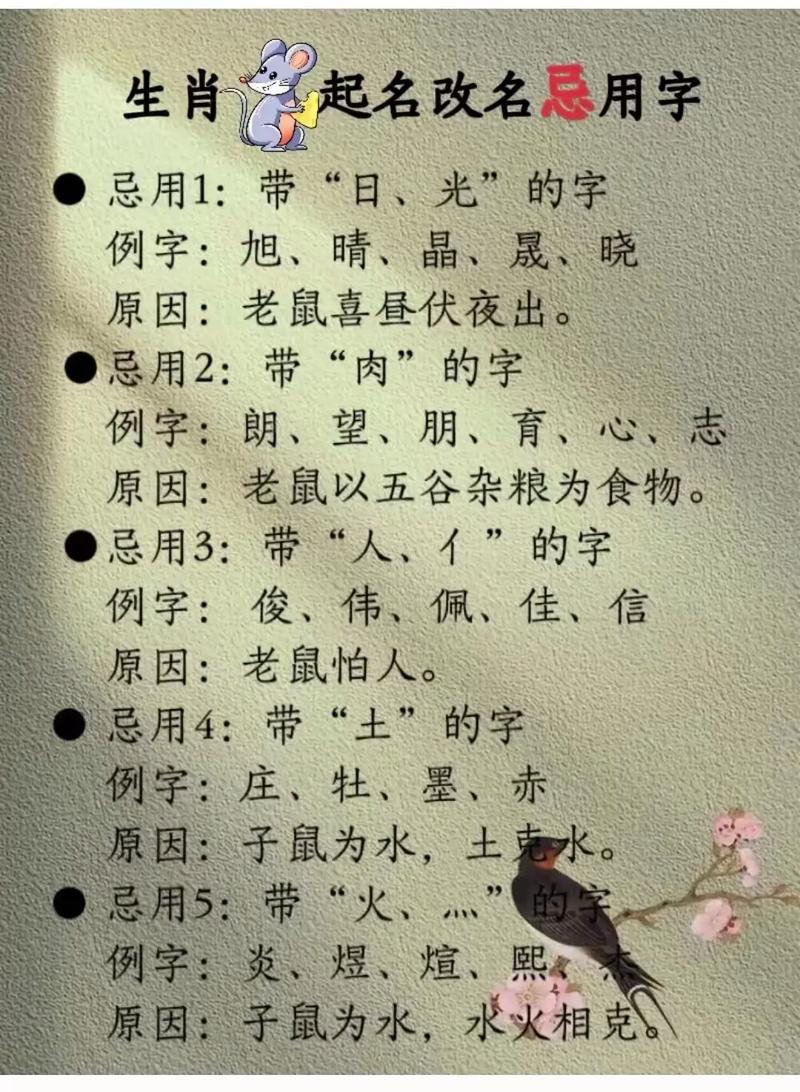 生肖起名改名忌用字
● 忌用1：带“日、光”的字
例字：旭、晴、晶、晟、晓
原因：老鼠喜昼伏夜出。
● 忌用2：带“肉”的字
例字：朗、望、朋、育、心、志
原因：老鼠以五谷杂粮为食物。
● 忌用3：带“人、亻”的字
例字：俊、伟、佩、佳、信
原因：老鼠怕人。
● 忌用4：带“土”的字
例字：庄、牡、墨、赤
原因：子鼠为水，土克水。
● 忌用5：带“火、灬”的字
例字：炎、煜、煊、熙、杰
原因：子鼠为水，水火相克。